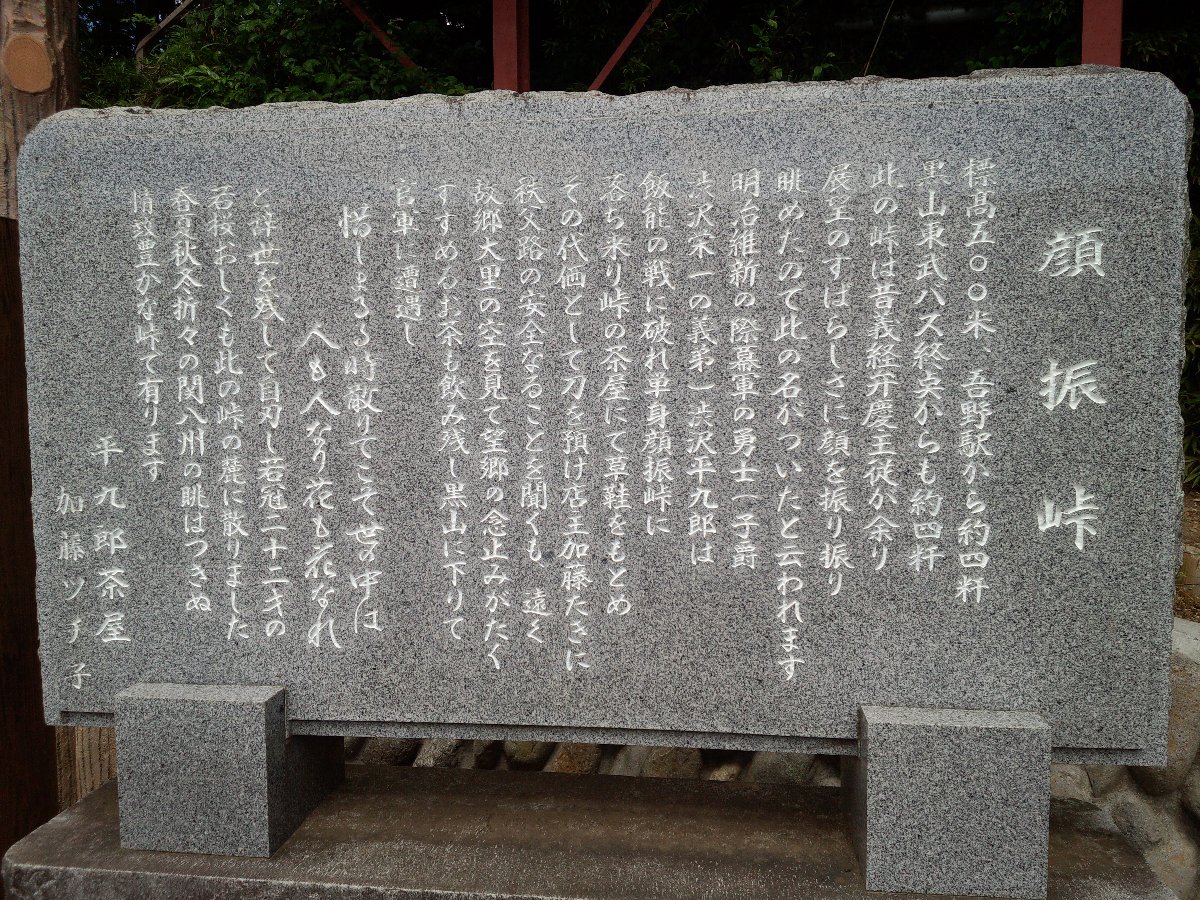 顔振峠
標高五〇〇米、吾野駅から約四粁
黒山東武バス終点からも約四粁
此の峠は昔義経弁慶主従が余り
展望のすばらしさに顔を振り振り
眺めたので此の名がついたと云われます
明治維新の際幕軍の勇士(子爵
渋沢栄一の義弟)渋沢平九郎は
飯能の戦に破れ単身顔振峠に
落ち来り峠の茶屋にて草鞋をもとめ
その代価として刀を預け店主加藤たきに
秩父路の安全なることを聞くも 遠く
故郷大里の空を見て望郷の念止みがたく
すすめるお茶も飲み残し黒山に下りて
官軍に遭遇し
惜しまるる時散りてこそ世の中は
人も人なり花も花なれ
と辞世を残して自刃し若冠二十二才の
若桜おしくも此の峠の麓に散りました
春夏秋冬折々の関八州の眺はつきぬ
情致豊かな峠で有ります
平九郎茶屋
加藤ツチ子